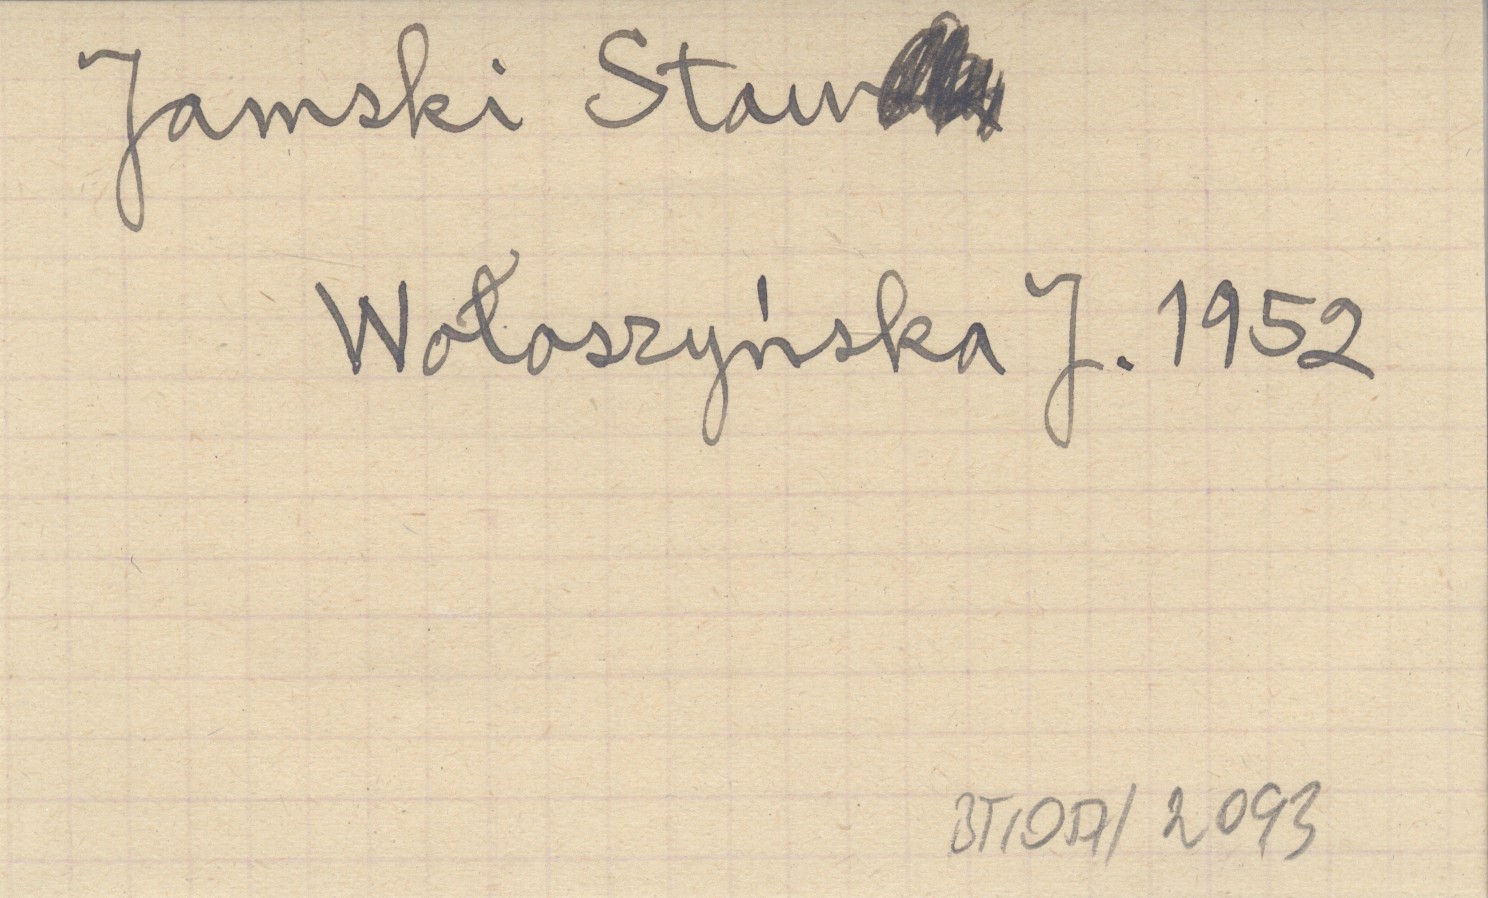 Jamski Staw
Wołoszyńska J. 1952
2093